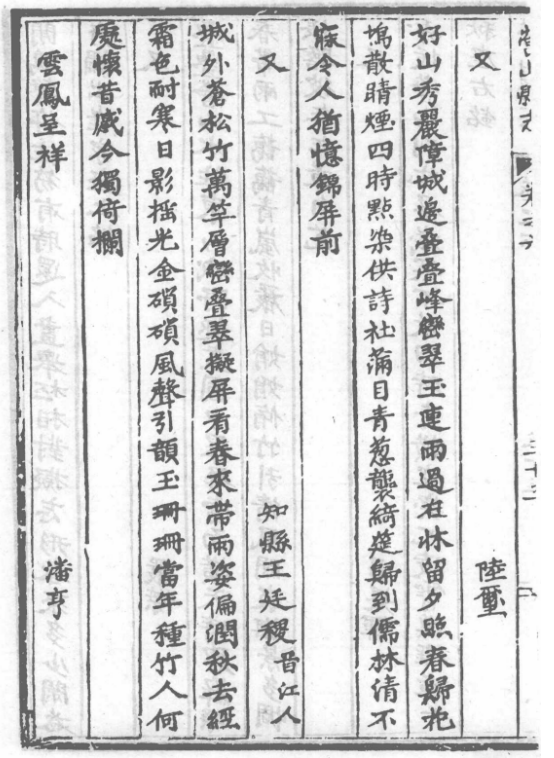 又 陸壐
好山秀麗障城邊叠叠峰巒翠玉連雨過在林留夕照春歸花
塢散晴煙四時點染供詩社滿目青葱襲綺筵歸到儒林清不
寐令人猶憶錦屏前
又 知縣王廷稷 晉江人
城外蒼松竹萬竿層巒叠翠擬屏看春來帶雨姿偏潤秋去經
霜色耐寒日影搖光金瑣瑣風聲引韻玉珊珊當年種竹人何
處懷昔感今獨倚欄
雲鳳呈祥 潘亨